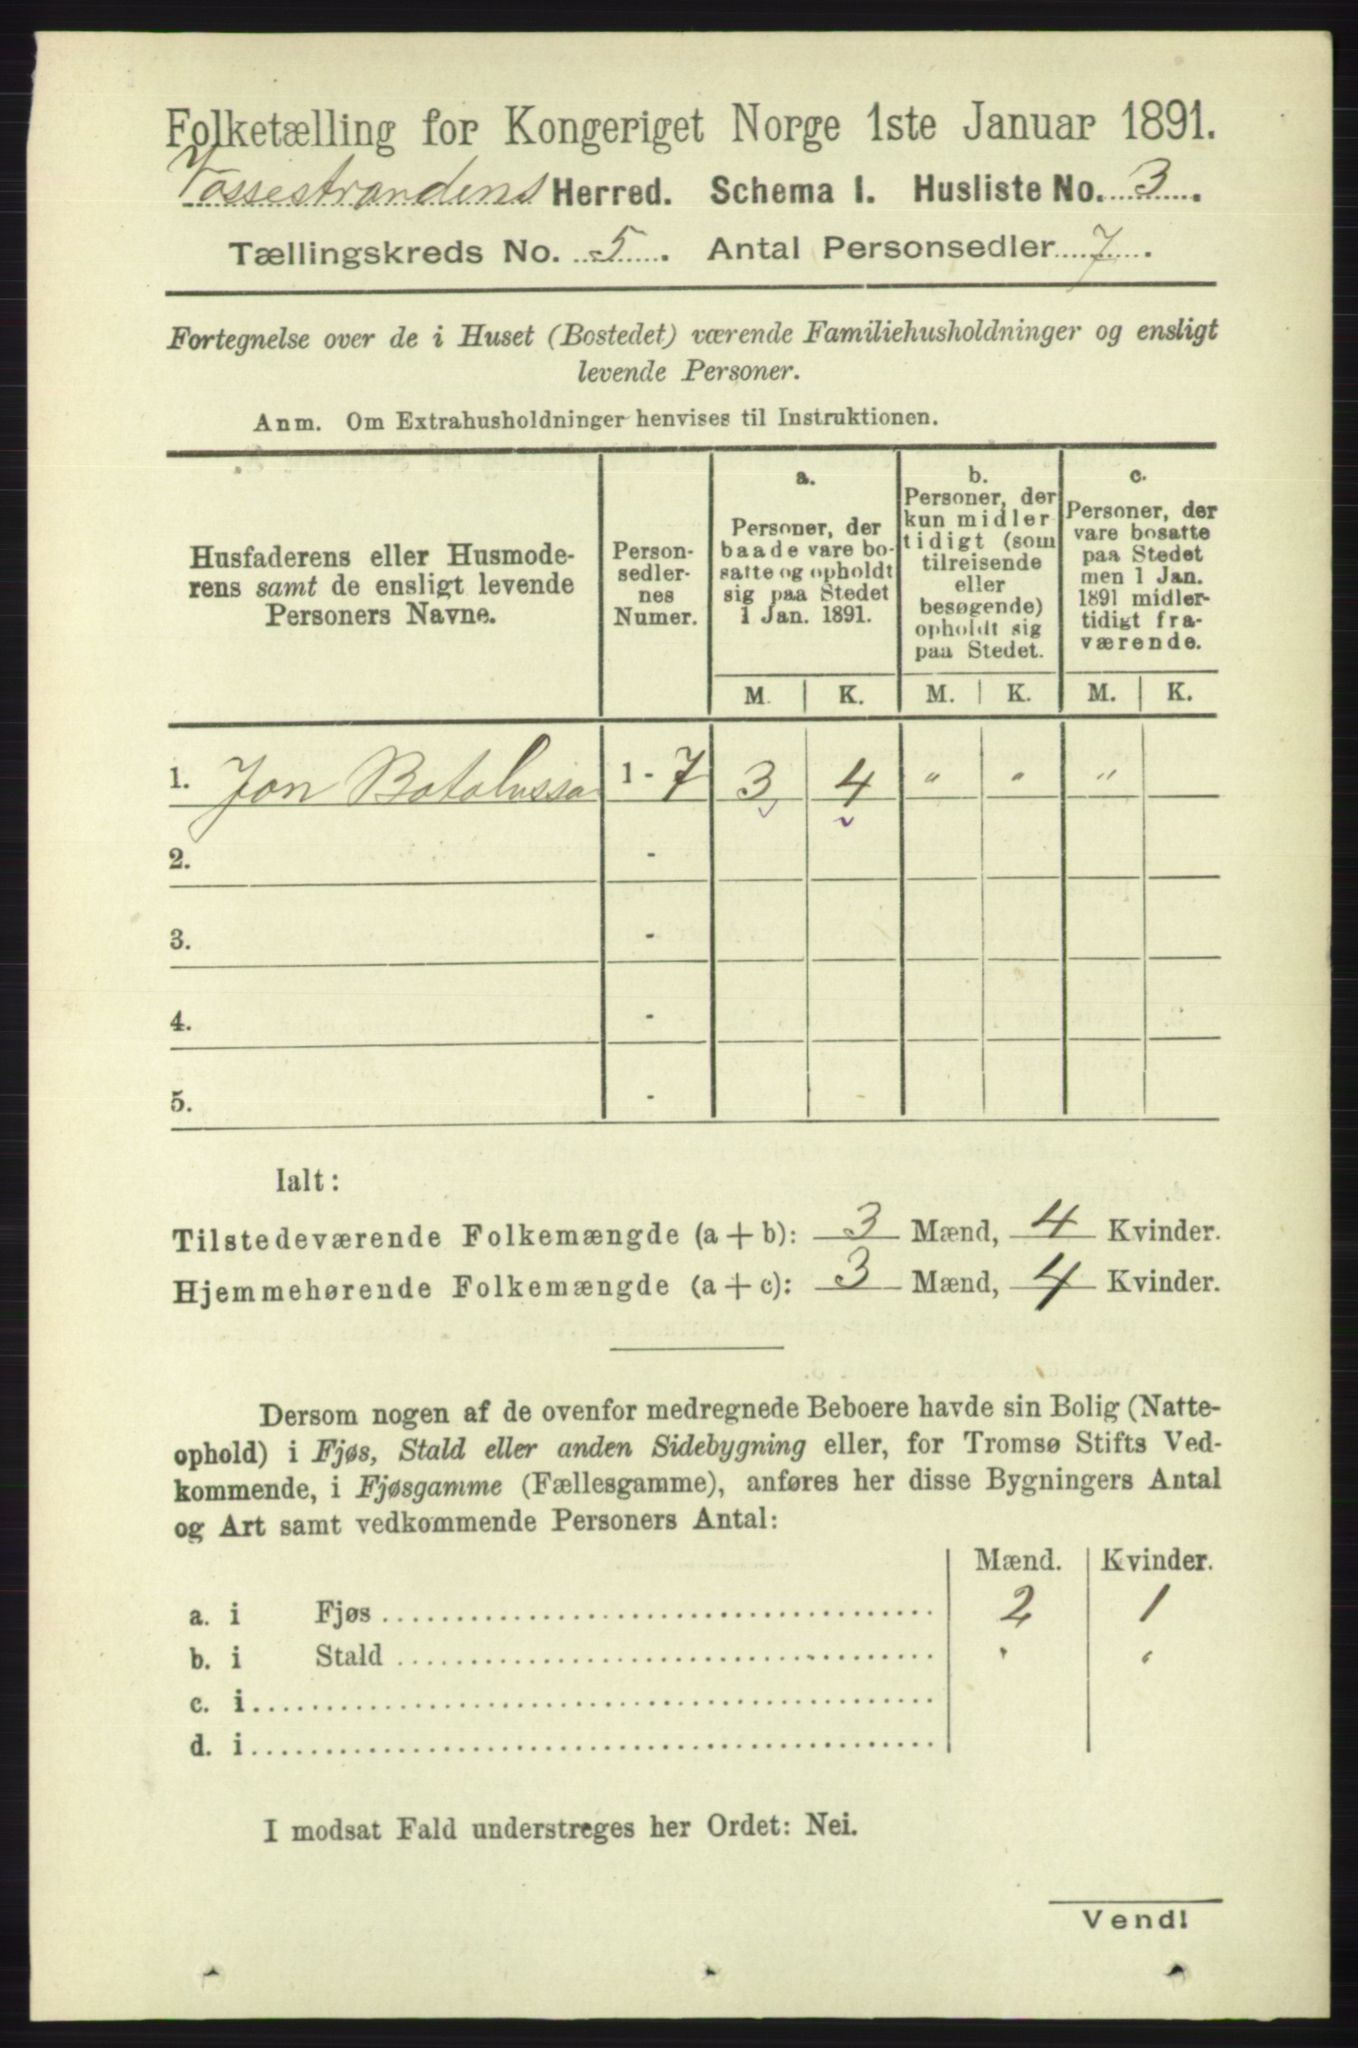 Folketælling for Kongeriget Norge 1ste Januar 1891.
Vossestrandens Herred. Schema 1. Husliste No. 3.
Tællingskreds No. 5. Antal Personsedler 7.
Fortegnelse over de i Huset (Bostedet) værende Familiehusholdninger og ensligt
levende Personer.
Anm. Om Extrahusholdninger henvises til Instruktionen.
Husfaderens eller Husmode-
rens samt de ensligt levende
Personers Navne.
Person-
sedler-
nes
Numer.
a.
Personer, der
baade vare bo-
satte og opholdt
sig paa Stedet
1 Jan. 1891.
b.
Personer, der
kun midler-
tidigt (som
tilreisende
eller
besøgende)
opholdt sig
paa Stedet.
c.
Personer, der
vare bosatte
paa Stedet
men 1 Jan.
1891 midler-
tidigt fra-
værende.
M. K. M. K. M. K.
1. Jon 1 - 7 3 4 " " "
2. -
3. -
4. -
5. -
Ialt:
Tilstedeværende Folkemængde (a + b): 3 Mænd, 4 Kvinder.
Hjemmehørende Folkemængde (a + c): 3 Mænd, 4 Kvinder.
Dersom nogen af de ovenfor medregnede Beboere havde sin Bolig (Natte-
ophold) i Fjøs, Stald eller anden Sidebygning eller, for Tromsø Stifts Ved-
kommende, i Fjøsgamme (Fællesgamme), anføres her disse Bygningers Antal
og Art samt vedkommende Personers Antal:
Mænd. Kvinder.
a. i Fjøs 2 1
b. i Stald " "
c. i
d. i
I modsat Fald understreges her Ordet: Nei.
Vend!